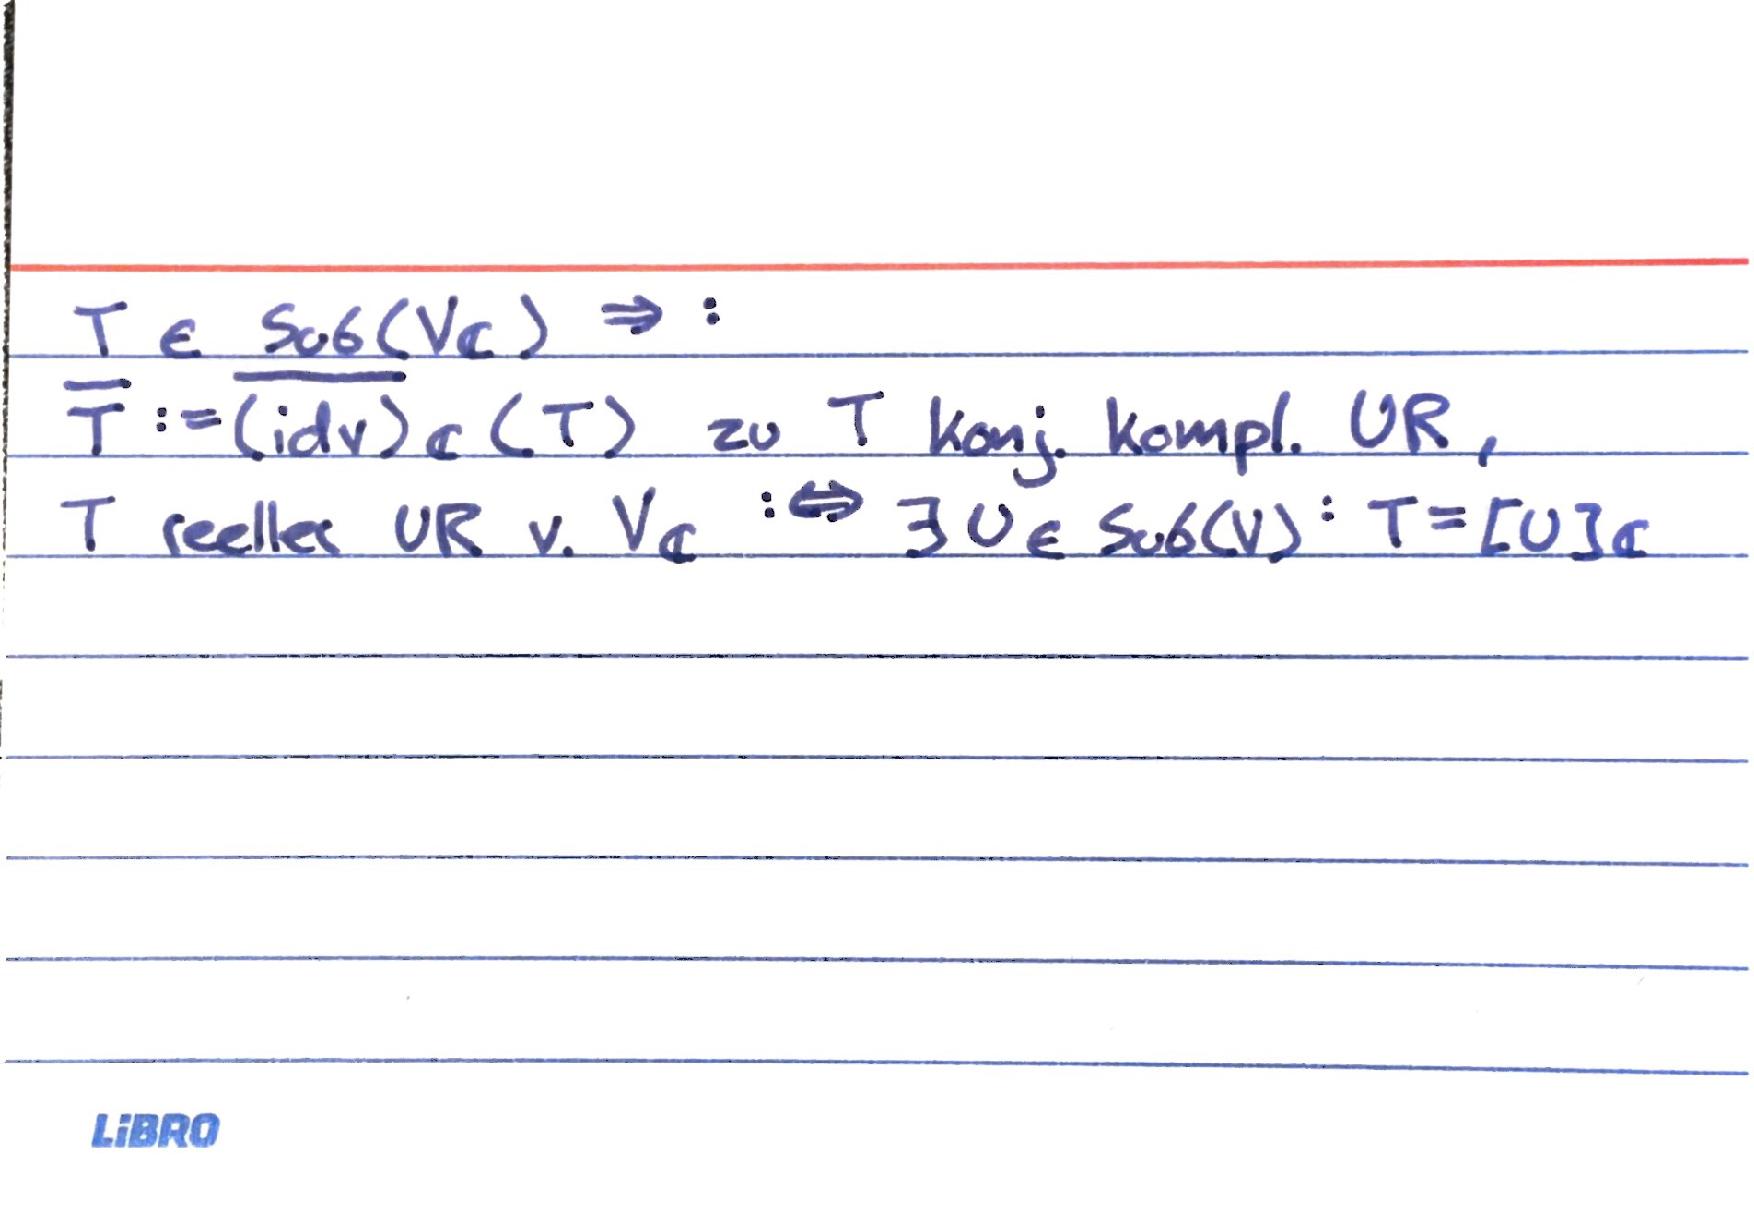 T ∈ Sub(V_ℂ) ⇒ :
T̅ := \overline{(id_V)_ℂ}(T) zu T konj. kompl. UR,
T reeller UR v. V_ℂ :⇔ ∃ U ∈ Sub(V): T = [U]_ℂ
LiBRO